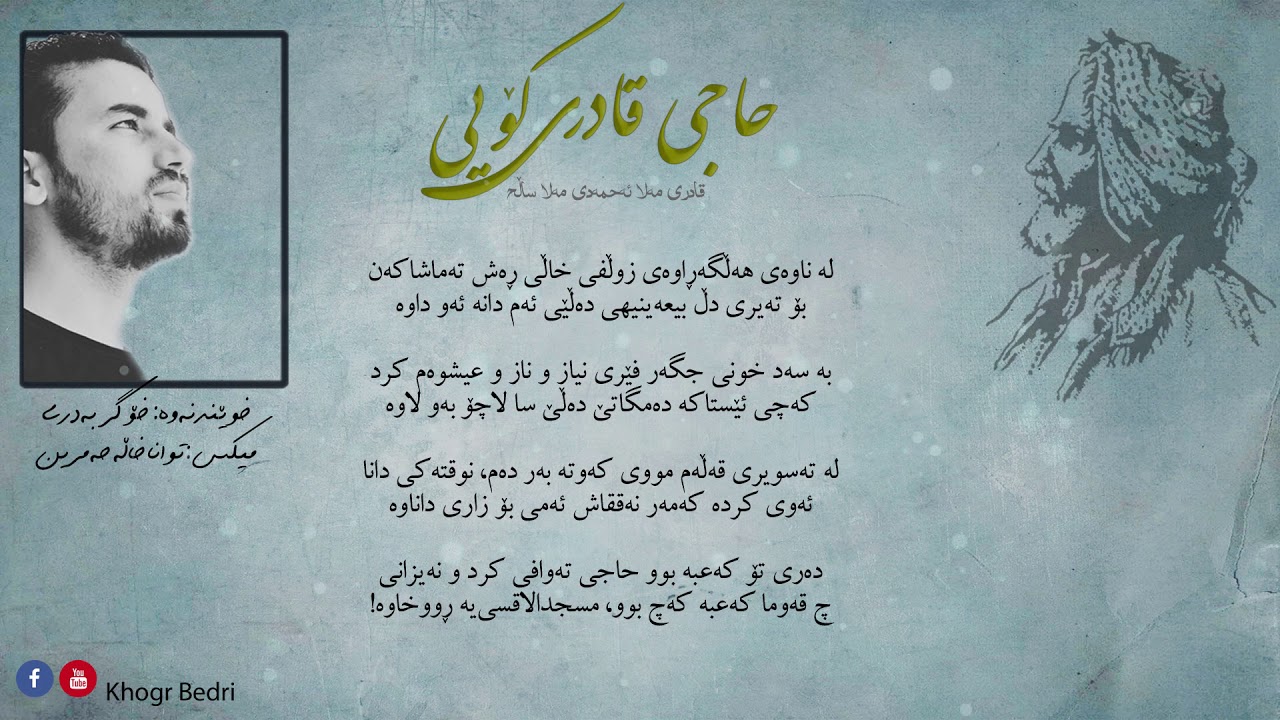 حاجی قادری کۆیی
قادری مەلا ئەحمەدی مەلا ساڵح
لە ناوەی هەڵگەڕاوەی زوڵفی خاڵی ڕەش تەماشاکەن
بۆ تەیری دڵ بیعەینیهی دەڵێی ئەم دانە ئەو داوە
بە سەد خونی جگەر فێری نیاز و ناز و عیشوەم کرد
کەچی ئێستاکە دەمگاتێ دەڵێ سا لاچۆ بەو لاوە
لە تەسویری قەڵەم مووی کەوتە بەر دەم، نوقتەکی دانا
ئەوی کردە کەمەر نەققاش ئەمی بۆ زاری داناوە
دەری تۆ کەعبە بوو حاجی تەوافی کرد و نەیزانی
چ قەوما کەعبە کەچ بوو، مسجدالاقسی‌یە ڕووخاوە!
خوێندنەوە: خۆگر بەدری
میکس: توانا خاڵە حەمرین
f
You Tube
Khogr Bedri